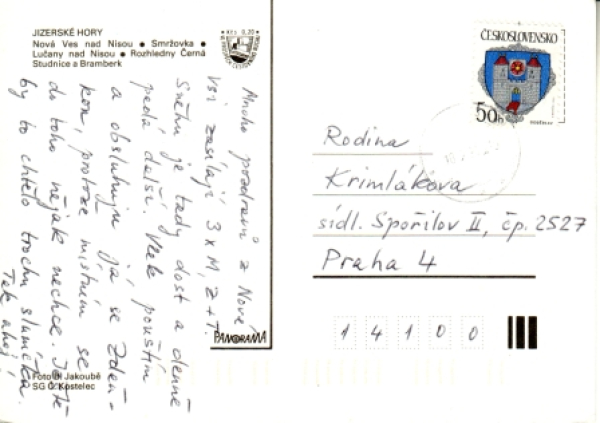 JIZERSKÉ HORY
Nová Ves nad Nisou • Smržovka •
Lučany nad Nisou • Rozhledny Černá
Studnice a Bramberk
Kčs 0,20
ČESKOSLOVENSKO
50h
Mnoho pozdravů z Nové
Vsi zasílají 3 x M, Z + T.
Sněhu je tady dost a denně
padá další. Vlek pouštím
a obsluhuju já se Zdeň-
kou, protože místním se
do toho nějak nechce. Ještě
by to chtělo trochu sluníčka.
Tak ahoj!
Rodina
Krimlákova
sídl. Spořilov II, čp. 2527
Praha 4
14100
PANORAMA
Foto B. Jakoubě
SG Č. Kostelec